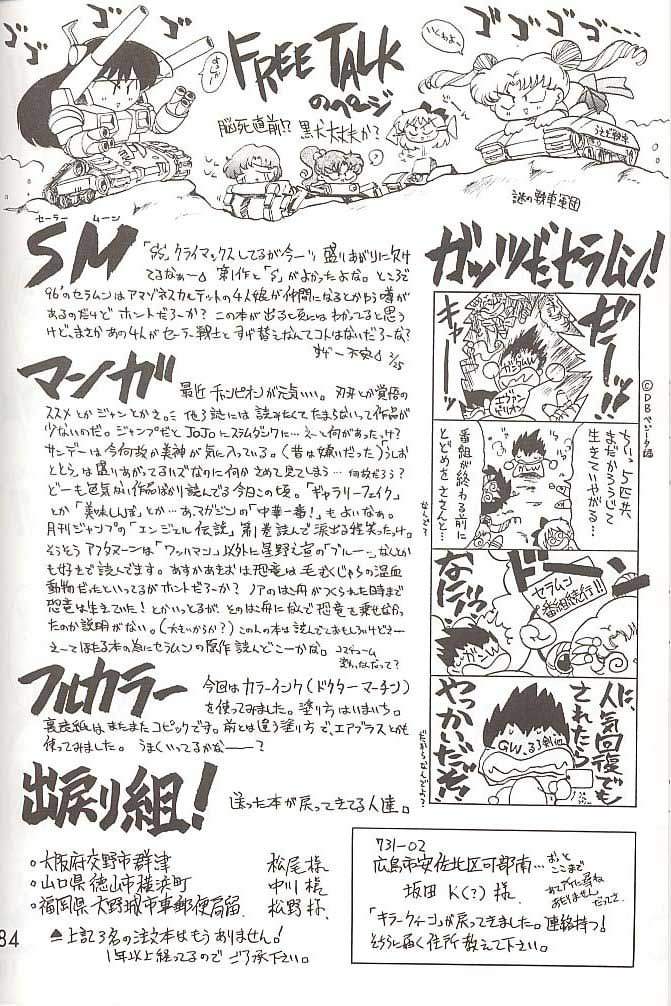 ゴゴゴ
FREE TALK
のページ
脳死直前!? 黒犬大丈夫か?
いくわよっ
ゴゴゴ
謎の戦車軍団
セーラー ムーン
SM
「SS」クライマックスしてるが今一ツ盛りあがりに欠け
てるなぁー 第1作と「S」がよかったよな。ところで
96'のセラムンはアマゾネスカルテットの4人娘が仲間になるとかゆう噂が
あるのだけど ホントだろーか? この本が出る頃にはわかってると思う
けど、まさかあの4人がセーラー戦士とすげ替えなんてコトはないだろーな?
不安 2/25
マンガ
最近チャンピオンが元気いい。刃牙とか覚悟の
ススメとかジャンとかさ。 他3誌には読みたくてたまらないって作品が
少ないのだ。ジャンプだとJoJoにスラムダンクに…えーて何があったっけ?
サンデーは今何故か美神が気に入っている。(昔は嫌いだった)うしお
ととらは盛りあがってるハズなのに何かさめて見てしまう…何故だろう?
どーも色気がない作品ばかり読んでる今日この頃。「ギャラリーフェイク」
とか「美味しんぼ」とか…あ、マガジンの「中華一番!」もよいなぁ。
月刊ジャンプの「エンジェル伝説」第1巻読んで涙出る程笑ったっけ。
そうそうアフタヌーンは「ワッハマン」以外に星野之宣の「ブルー」なんとか
も好きで読んでます。あすかあきおは恐竜は毛むくじゃらの温血
動物だったといってるがホントだろーか? ノアの舟がつくられた時まで
恐竜は生きていた! とかいっとるが、そのは舟になんで恐竜を乗せなかっ
たのか説明がない。(大きいからか?)この人の本は読んでておもしろいけどさー
えーてほたる本の為にセラムンの原作読んどこーかな。
フルカラー
今回はカラーインク(ドクターマーチン)
を使ってみました。塗り方はいまいち。
裏表紙はまたまたコピックです。前とは違う塗り方で、エアブラスとかも
使ってみました。うまくいってるかな――?
出戻り組!
送った本が戻ってきてる人達。
○大阪府交野市群津 松尾 様
○山口県徳山市横浜町 中川 様
○福岡県大野城市東郵便局留 松野 様
▲上記3名の注文本はもうありません!
1年以上経ってるのでご了承下さい。
84
ガッツだセラムン!
ゼーッ!!
キャー
ガンダムW
エヴァンゲリオン
©DBベジータ編
ちいっ5匹共
まだかろうじて
生きていやがる…
番組が終わる前に
とどめをささんと…
なんで?
ドーン
セラムン
番組続行!!
なにィッ!
人気回復でも
されたら
やっかいだぞ!
GW. るろ剣
だからなんでよ?
731-02
広島市安佐北区可部南…
おっと
ここまで
坂田 K(?) 様
「キラークィーン」が戻ってきました。連絡持つ!
そちらに届く住所教えて下さい。